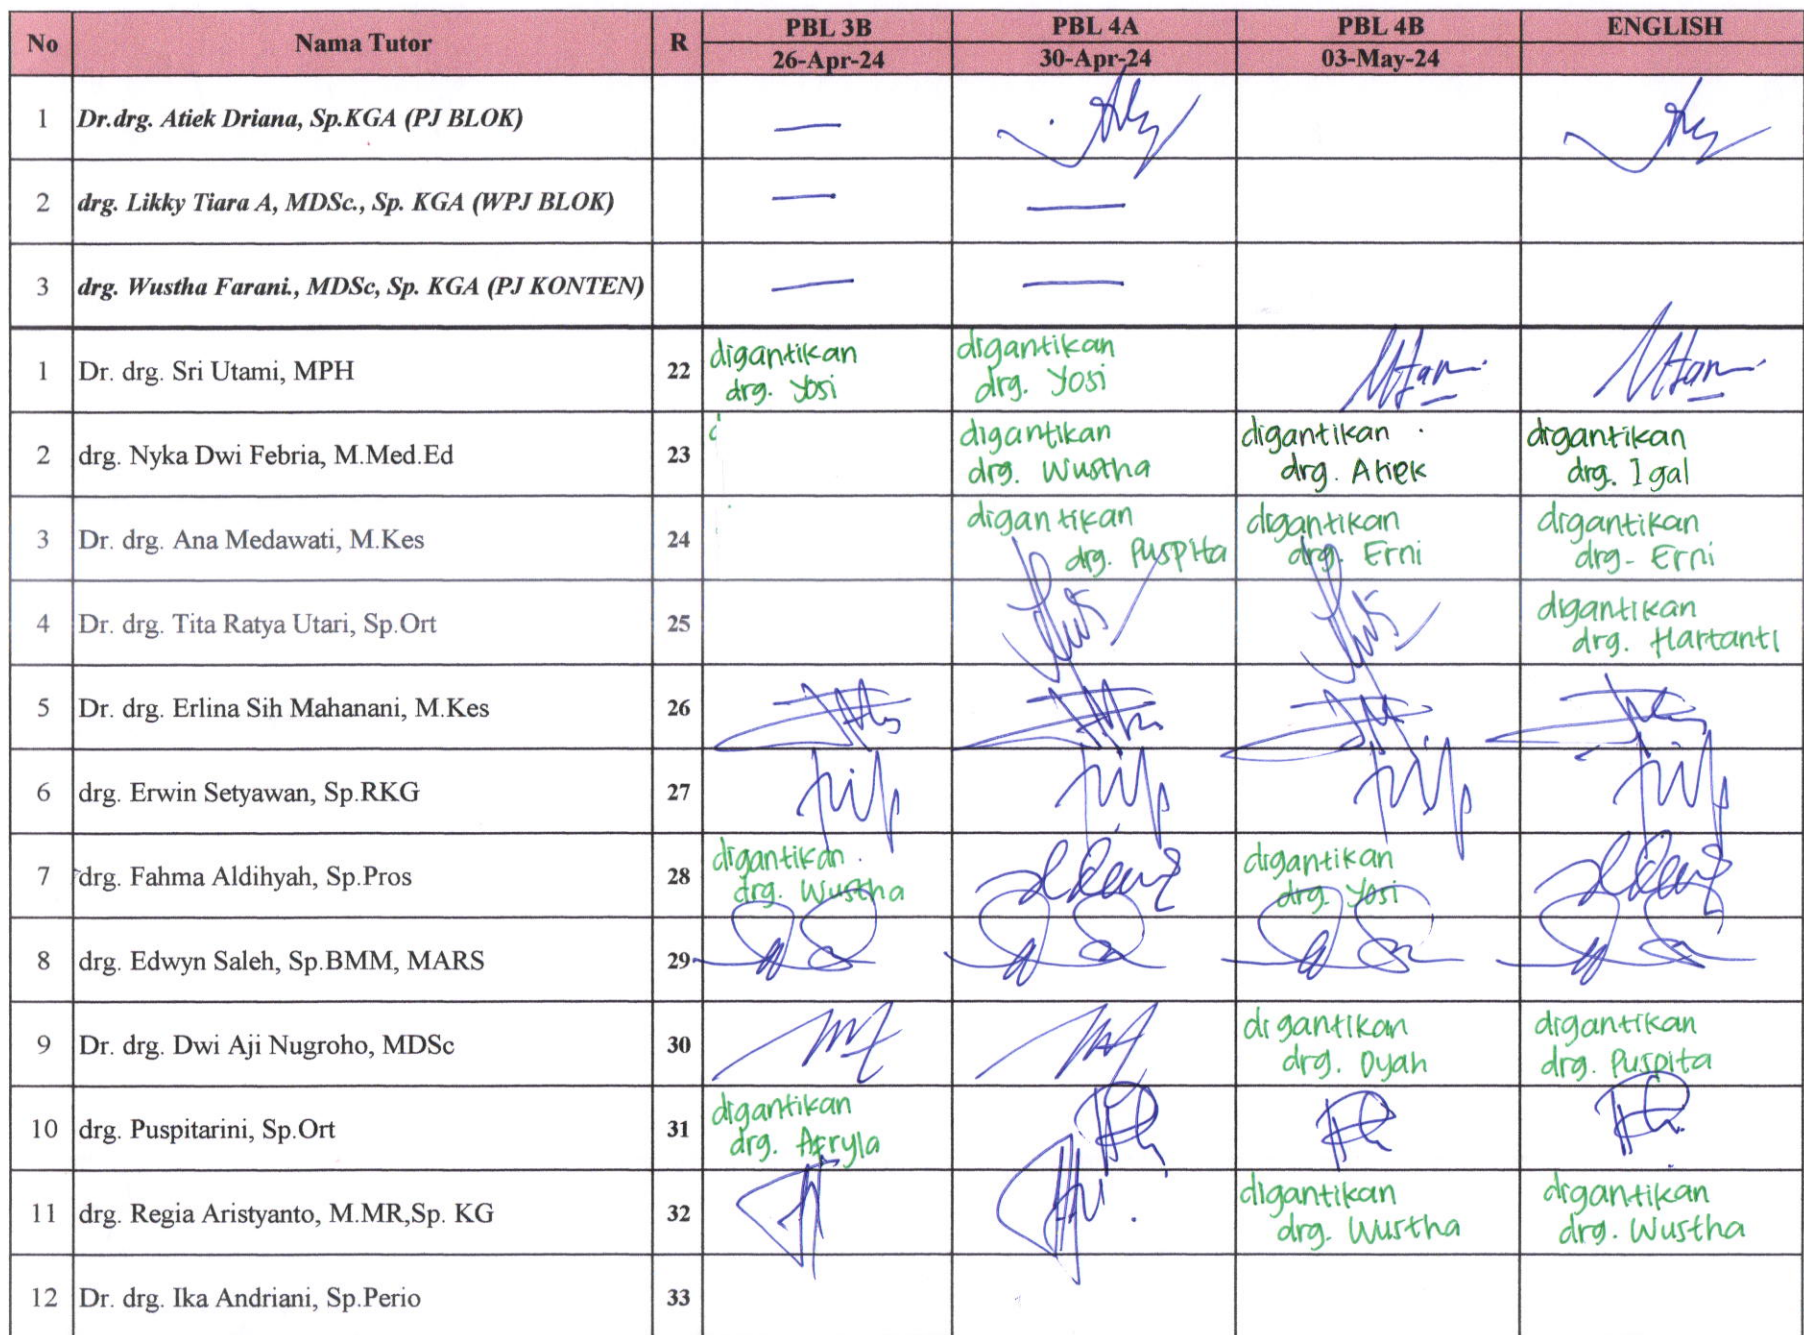 No Nama Tutor R PBL 3B PBL 4A PBL 4B ENGLISH
26-Apr-24 30-Apr-24 03-May-24
1 Dr.drg. Atiek Driana, Sp.KGA (PJ BLOK) —
2 drg. Likky Tiara A, MDSc., Sp. KGA (WPJ BLOK) — —
3 drg. Wustha Farani., MDSc, Sp. KGA (PJ KONTEN) — —
1 Dr. drg. Sri Utami, MPH 22 digantikan drg. Yosi digantikan drg. Yosi
2 drg. Nyka Dwi Febria, M.Med.Ed 23 digantikan drg. Wustha digantikan drg. Atiek digantikan drg. Igal
3 Dr. drg. Ana Medawati, M.Kes 24 digantikan drg. Puspita digantikan drg. Erni digantikan drg- Erni
4 Dr. drg. Tita Ratya Utari, Sp.Ort 25 digantikan drg. Hartanti
5 Dr. drg. Erlina Sih Mahanani, M.Kes 26
6 drg. Erwin Setyawan, Sp.RKG 27
7 drg. Fahma Aldihyah, Sp.Pros 28 digantikan drg. Wustha digantikan drg. Yosi
8 drg. Edwyn Saleh, Sp.BMM, MARS 29
9 Dr. drg. Dwi Aji Nugroho, MDSc 30 digantikan drg. Dyah digantikan drg. Puspita
10 drg. Puspitarini, Sp.Ort 31 digantikan drg. Afryla
11 drg. Regia Aristyanto, M.MR,Sp. KG 32 digantikan drg. Wustha digantikan drg. Wustha
12 Dr. drg. Ika Andriani, Sp.Perio 33